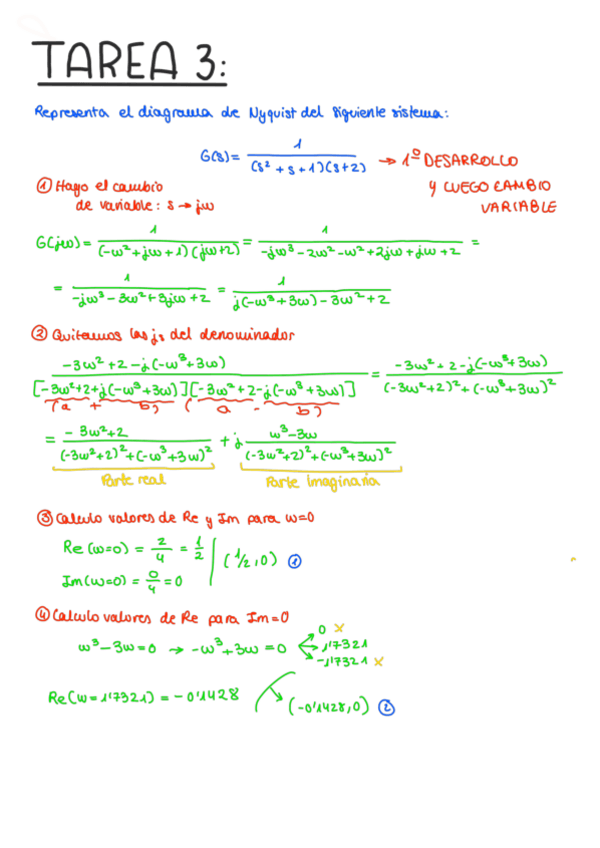 TAREA 3:
Representa el diagrama de Nyquist del siguiente sistema:
G(s) = 1 / ((s² + s + 1)(s + 2)) → 1º DESARROLLO
Y LUEGO CAMBIO
VARIABLE
① Hago el cambio
de variable: s → jω
G(jω) = 1 / ((-ω² + jω + 1)(jω + 2)) = 1 / (-jω³ - 2ω² - ω² + 2jω + jω + 2) =
= 1 / (-jω³ - 3ω² + 3jω + 2) = 1 / (j(-ω³ + 3ω) - 3ω² + 2)
② Quitamos las js del denominador
(-3ω² + 2 - j(-ω³ + 3ω)) / ([-3ω² + 2 + j(-ω³ + 3ω)][-3ω² + 2 - j(-ω³ + 3ω)]) = (-3ω² + 2 - j(-ω³ + 3ω)) / ((-3ω² + 2)² + (-ω³ + 3ω)²)
(a + b) (a - b)
= (-3ω² + 2) / ((-3ω² + 2)² + (-ω³ + 3ω)²) + j (ω³ - 3ω) / ((-3ω² + 2)² + (-ω³ + 3ω)²)
Parte real Parte Imaginaria
③ Calculo valores de Re y Im para ω=0
Re(ω=0) = 2/4 = 1/2
(1/2, 0) ①
Im(ω=0) = 0/4 = 0
④ Calculo valores de Re para Im=0
ω³ - 3ω = 0 → -ω³ + 3ω = 0
0 x
1'7321
-1'7321 x
Re(ω=1'7321) = -0'1428
(-0'1428, 0) ②